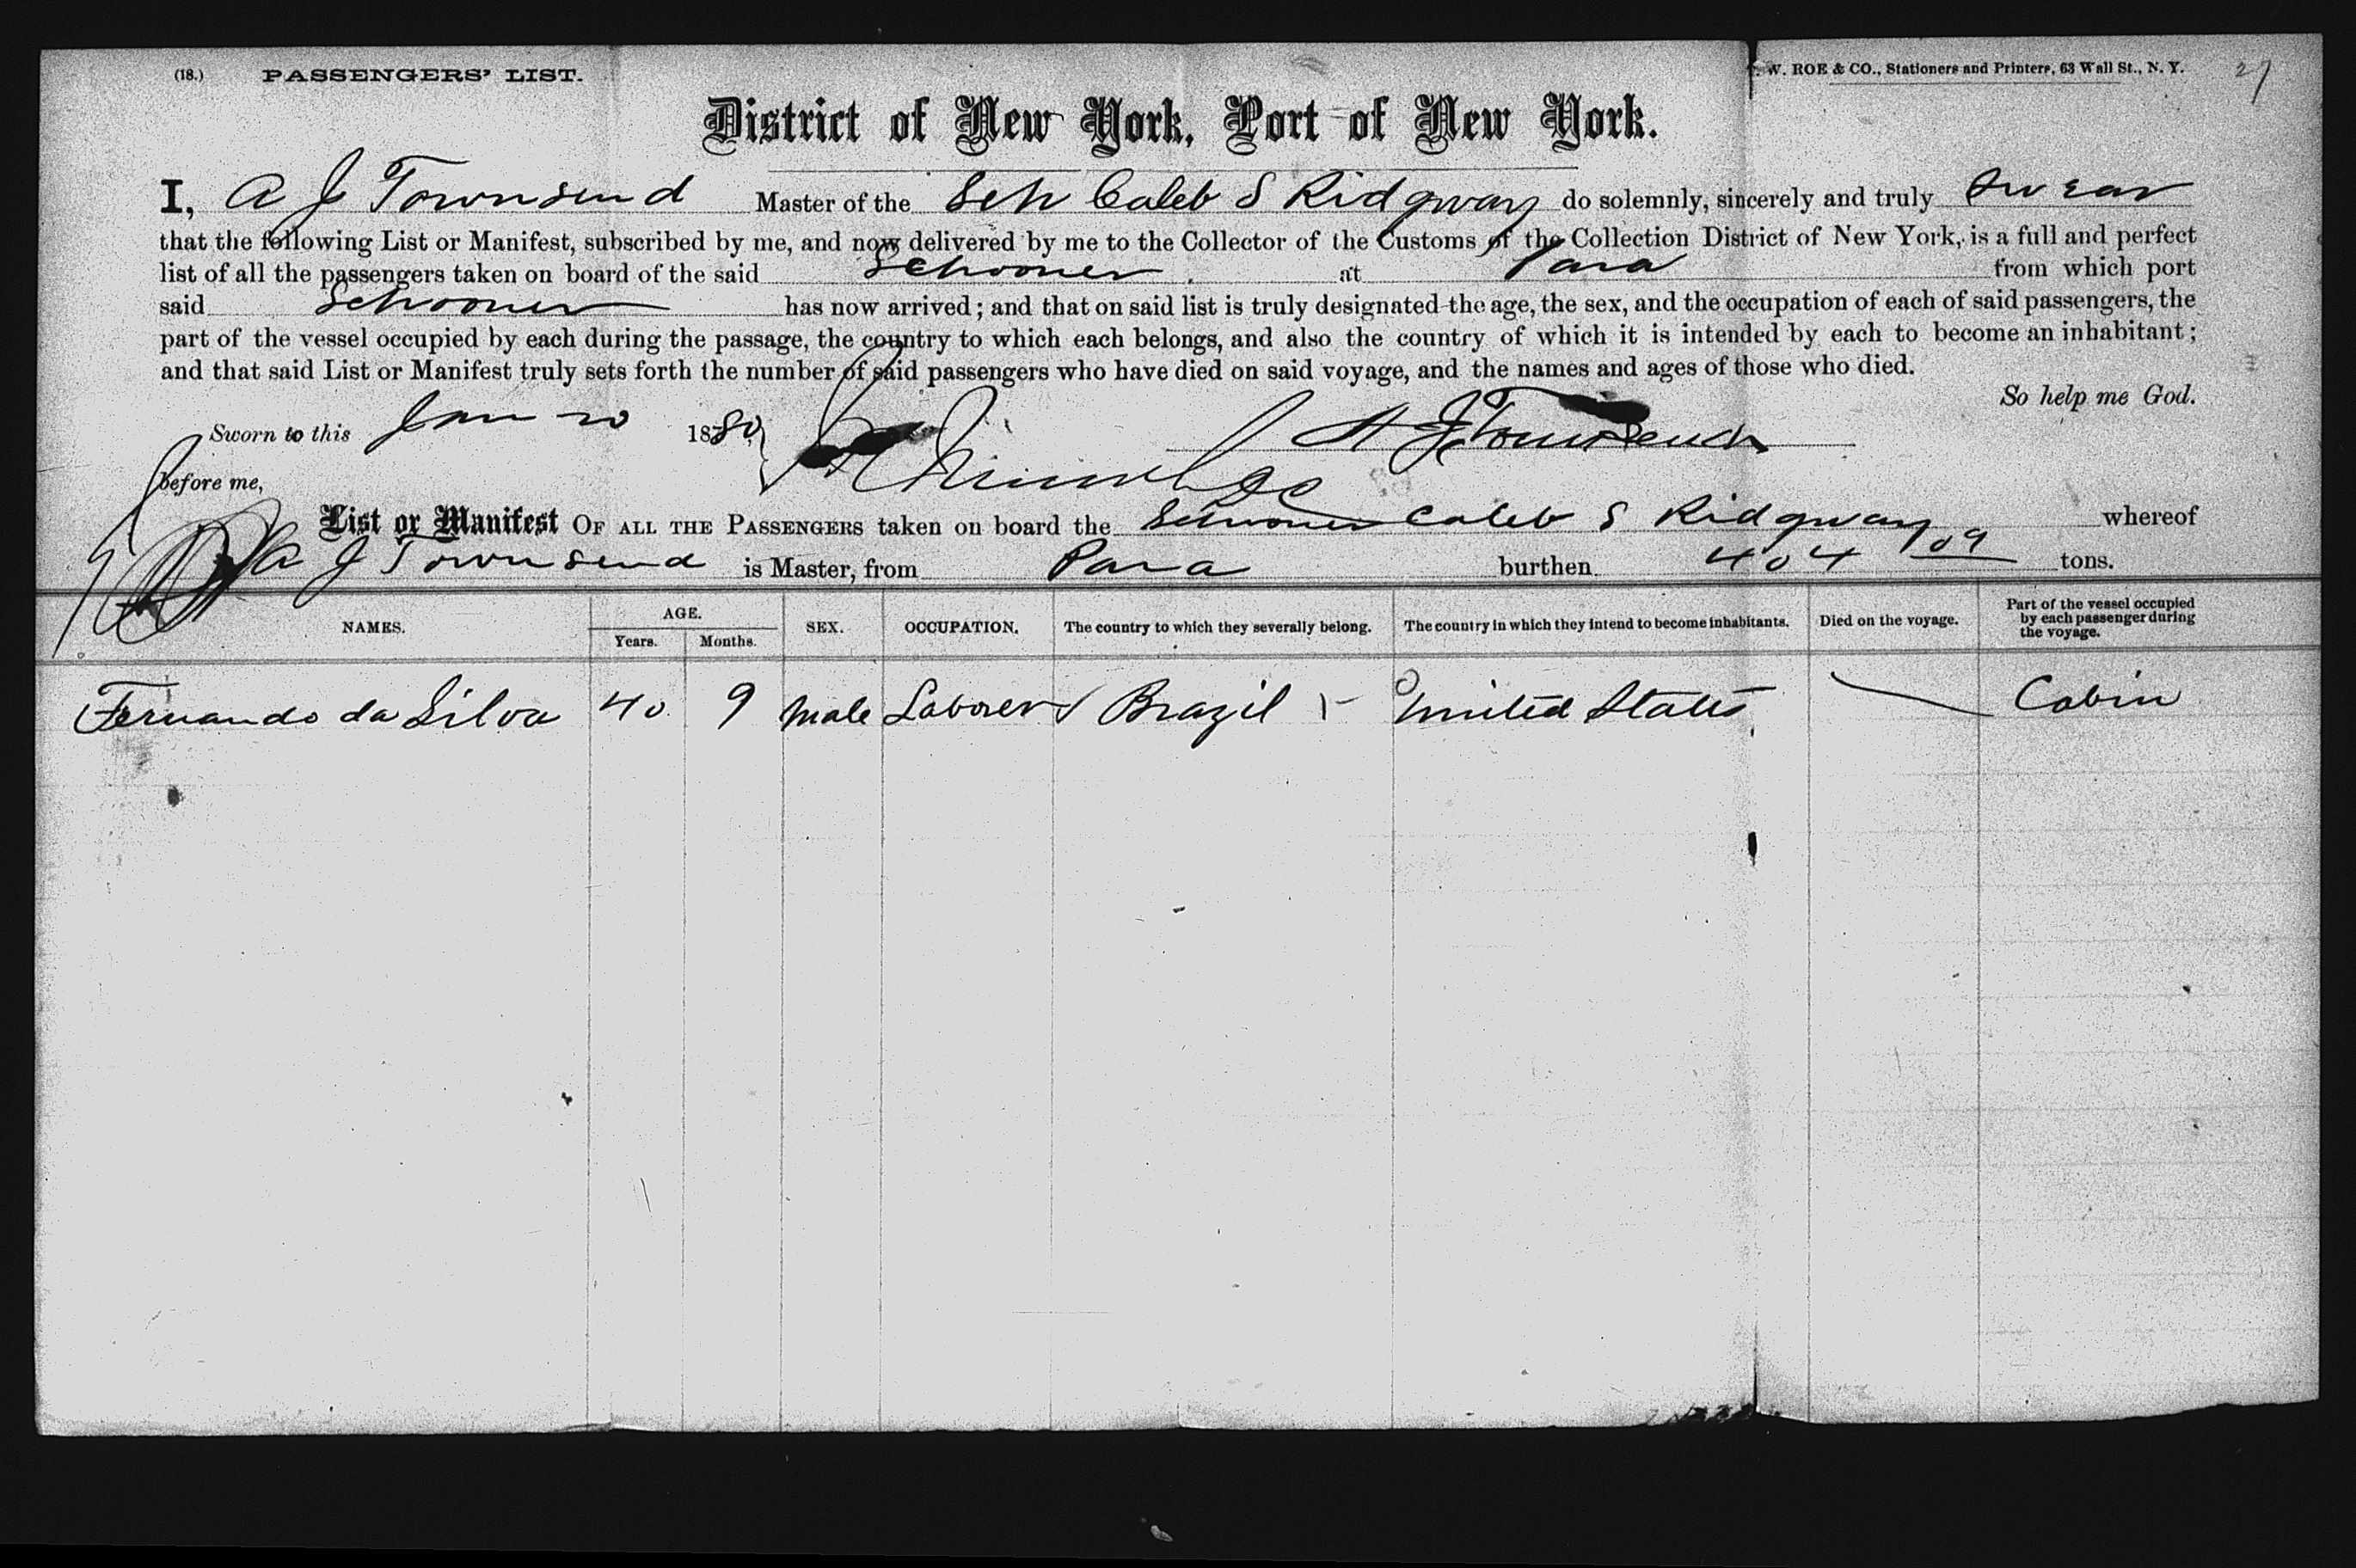 (18.) PASSENGERS' LIST. W. ROE & CO., Stationers and Printers, 63 Wall St., N. Y. 27
District of New York, Port of New York.
I, A J Townsend Master of the Sch Caleb S Ridgway do solemnly, sincerely and truly swear
that the following List or Manifest, subscribed by me, and now delivered by me to the Collector of the Customs of the Collection District of New York, is a full and perfect
list of all the passengers taken on board of the said Schooner at Para from which port
said Schooner has now arrived; and that on said list is truly designated the age, the sex, and the occupation of each of said passengers, the
part of the vessel occupied by each during the passage, the country to which each belongs, and also the country of which it is intended by each to become an inhabitant;
and that said List or Manifest truly sets forth the number of said passengers who have died on said voyage, and the names and ages of those who died.
So help me God.
Sworn to this Jan 20 1880 A J Townsend
before me,
List or Manifest OF ALL THE PASSENGERS taken on board the Schooner Caleb S Ridgway whereof
A J Townsend is Master, from Para burthen 404 09 tons.
NAMES. AGE. Years. Months. SEX. OCCUPATION. The country to which they severally belong. The country in which they intend to become inhabitants. Died on the voyage. Part of the vessel occupied by each passenger during the voyage.
Fernando da Silva 40 9 Male Laborer Brazil United States Cabin